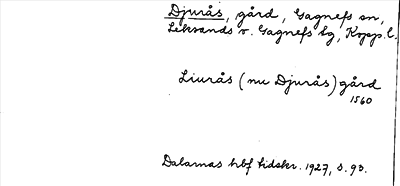 Djurås, gård, Gagnefs sn,
Leksands o. Gagnefs tg, Kopp. l.
Liurås (nu Djurås) gård
1560
Dalarnas hbf tidskr. 1927, s. 93.